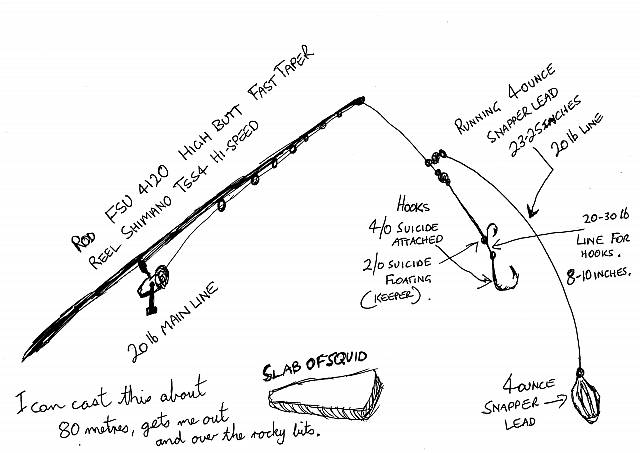 ROD FSU 4120 HIGH BUTT FAST TAPER
REEL SHIMANO TSS4 HI-SPEED
20 lb MAIN LINE
RUNNING 4 OUNCE
SNAPPER LEAD
23-25 INCHES
20 lb LINE
HOOKS
4/0 SUICIDE
ATTACHED
2/0 SUICIDE
FLOATING
(KEEPER).
20-30 lb
LINE FOR
HOOKS.
8-10 INCHES.
SLAB OF SQUID
4 OUNCE
SNAPPER
LEAD
I can cast this about
80 metres, gets me out
and over the rocky bits.